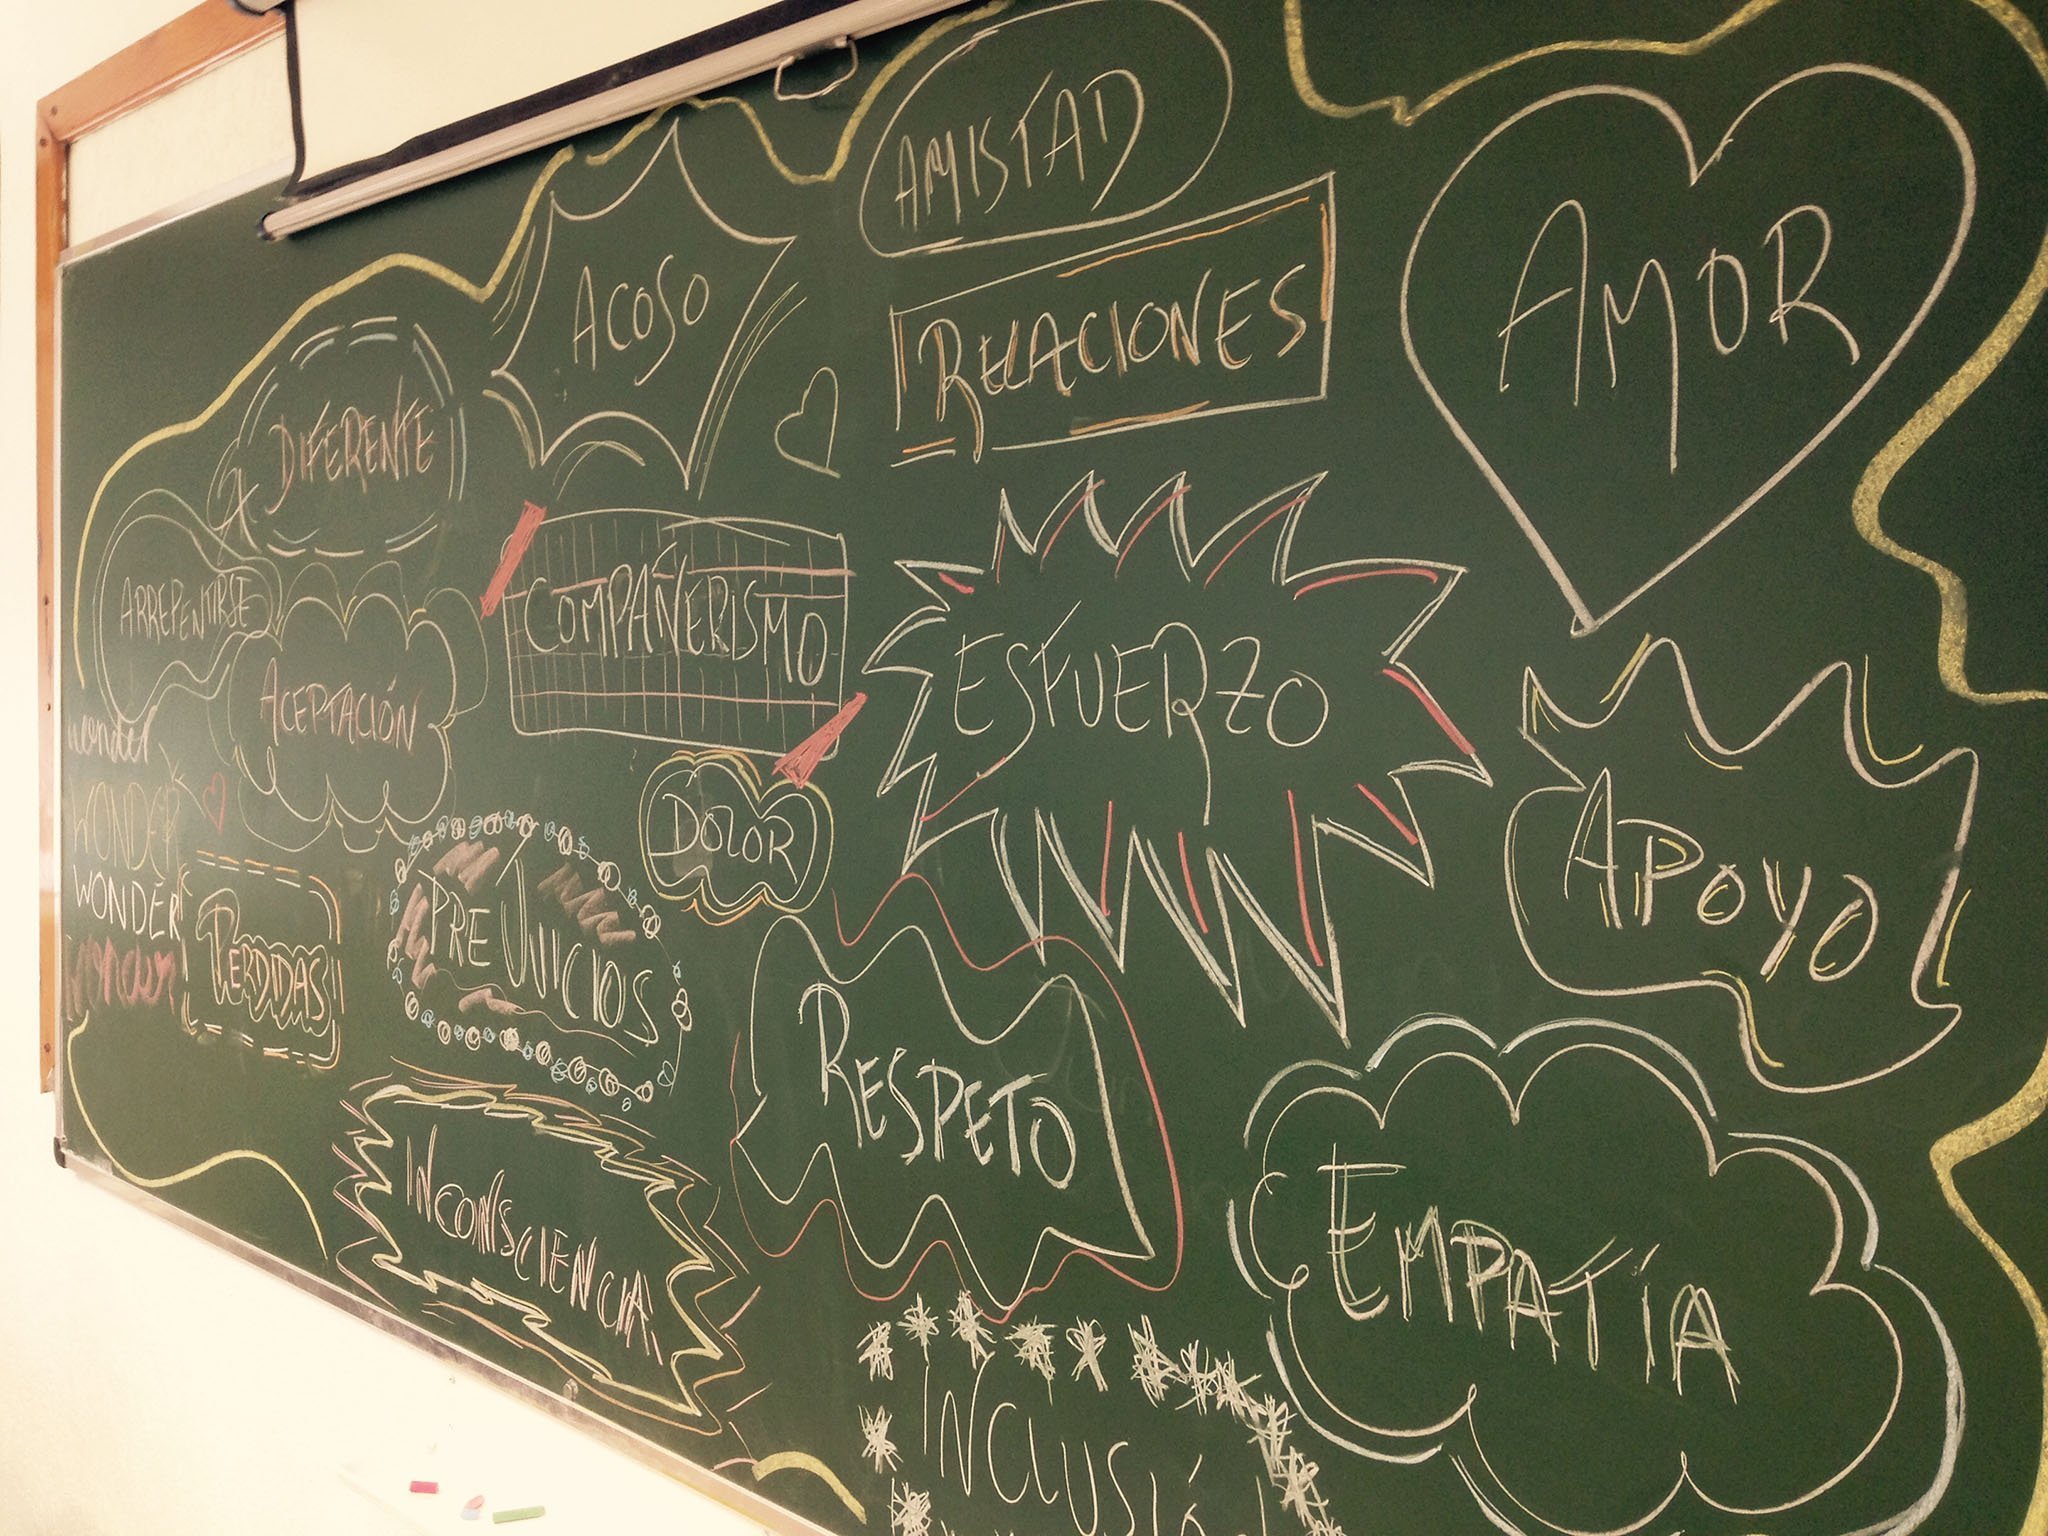 AMISTAD
AMOR
ACOSO
RELACIONES
DIFERENTE
COMPAÑERISMO
ARREPENTIRSE
ESFUERZO
ACEPTACIÓN
wonder
WONDER
WONDER
WONDER
DOLOR
APOYO
PERDIDAS
PREJUICIOS
RESPETO
INCONSCIENCIA
EMPATÍA
INCLUSIÓ